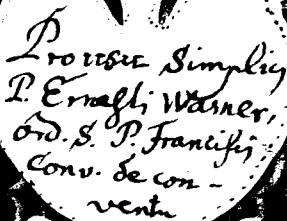 Provisit Simplicis
P. Ernesti Warner,
ord. S. P. Francisci
Conv. de con-
ventu